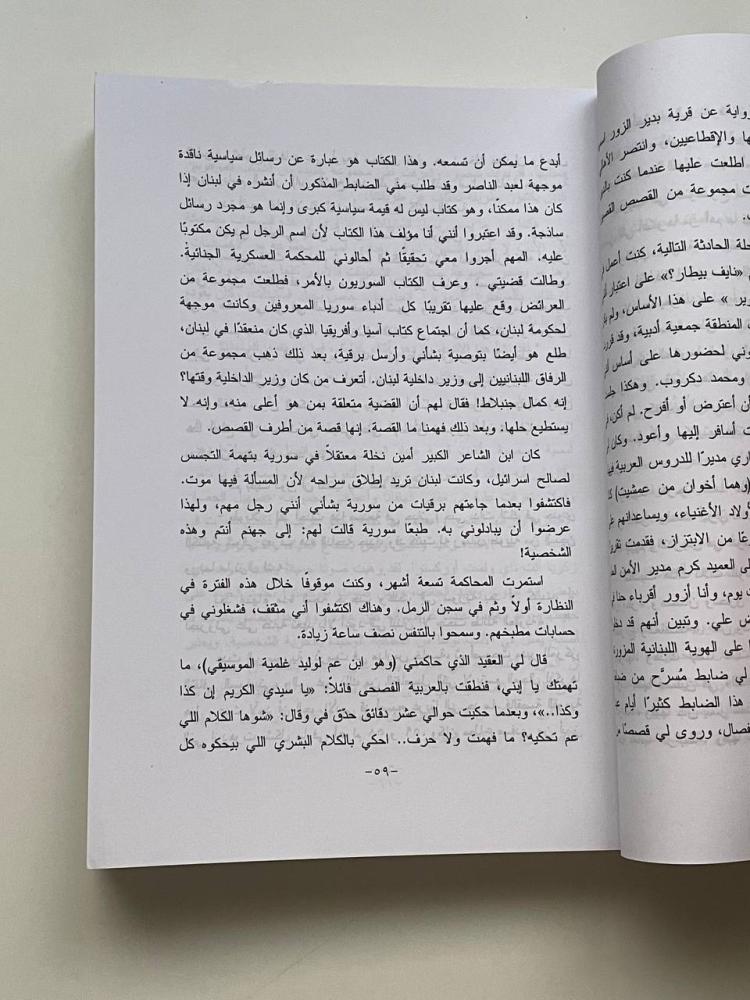 رواية عن قرية بدير الزور
والإقطاعيين، وانتصر
اطلعت عليها عندما كنت
مجموعة من القصص
الحادثة التالية، كنت أعمل
«نايف بيطار؟» على اعتبار
» على هذا الأساس، ولم
المنطقة جمعية أدبية، وقد
لحضورها على أساس
ومحمد دكروب. وهكذا
أن أعترض أو أفرح. لم أكن
أسافر إليها وأعود. وكان
مديرًا للدروس العربية
(وهما أخوان من عمشيت)
الأغنياء، ويساعدانهم
من الابتزاز، فقدمت
العميد كرم مدير الأمن
يوم، وأنا أزور أقرباء
علي. وتبين أنهم قد
على الهوية اللبنانية المزورة
لي ضابط مُسرَّح من
هذا الضابط كثيرًا أيام
وروى لي قصصًا
أبدع ما يمكن أن تسمعه. وهذا الكتاب هو عبارة عن رسائل سياسية ناقدة
موجهة لعبد الناصر وقد طلب مني الضابط المذكور أن أنشره في لبنان إذا
كان هذا ممكنًا، وهو كتاب ليس له قيمة سياسية كبرى وإنما هو مجرد رسائل
ساذجة. وقد اعتبروا أنني أنا مؤلف هذا الكتاب لأن اسم الرجل لم يكن مكتوبًا
عليه. المهم أجروا معي تحقيقًا ثم أحالوني للمحكمة العسكرية الجنائية.
وطالت قضيتي . وعرف الكتاب السوريون بالأمر، فطلعت مجموعة من
العرائض وقع عليها تقريبًا كل أدباء سوريا المعروفين وكانت موجهة
لحكومة لبنان، كما أن اجتماع كتاب آسيا وأفريقيا الذي كان منعقدًا في لبنان،
طلع هو أيضًا بتوصية بشأني وأرسل برقية، بعد ذلك ذهب مجموعة من
الرفاق اللبنانيين إلى وزير داخلية لبنان. أتعرف من كان وزير الداخلية وقتها؟
إنه كمال جنبلاط! فقال لهم أن القضية متعلقة بمن هو أعلى منه، وإنه لا
يستطيع حلها. وبعد ذلك فهمنا ما القصة. إنها قصة من أطرف القصص.
كان ابن الشاعر الكبير أمين نخلة معتقلاً في سورية بتهمة التجسس
لصالح اسرائيل، وكانت لبنان تريد إطلاق سراحه لأن المسألة فيها موت.
فاكتشفوا بعدما جاءتهم برقيات من سورية بشأني أنني رجل مهم، ولهذا
عرضوا أن يبادلوني به. طبعًا سورية قالت لهم: إلى جهنم أنتم وهذه
الشخصية!
استمرت المحاكمة تسعة أشهر، وكنت موقوفًا خلال هذه الفترة في
النظارة أولاً وثم في سجن الرمل. وهناك اكتشفوا أني مثقف، فشغلوني في
حسابات مطبخهم. وسمحوا بالتنفس نصف ساعة زيادة.
قال لي العقيد الذي حاكمني (وهو ابن عم لوليد غلمية الموسيقي)، ما
تهمتك يا إبني، فنطقت بالعربية الفصحى قائلاً: «يا سيدي الكريم إن كذا
وكذا..»، وبعدما حكيت حوالي عشر دقائق حدّق في وقال: «شوها الكلام اللي
عم تحكيه؟ ما فهمت ولا حرف.. احكي بالكلام البشري اللي بيحكوه كل
-٥٩-